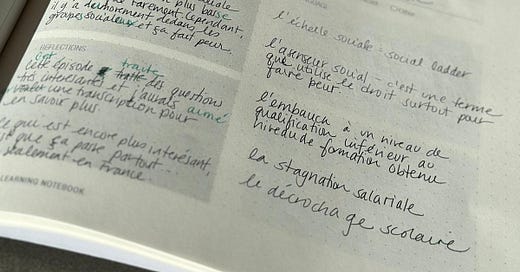 plus baisé
rarement cependant,
il y a dedans les
groupes sociaux et ça fait peur.
REFLECTIONS
ont traits
Cette épisode traite des questions
très intéresantes et j'aurais aimé
une transcription pour
en savoir plus
ce qui est encore plus intéresant,
que ça passe partout...
seulement en france.
LEARNING NOTEBOOK
l'échelle sociale = social ladder
l'asenseur social - c'est une terme
que utilise le droit surtout pour
faire peur
l'embauch à un niveau de
qualification inférieur au
niveau de formation obtenu
la stagnation salariale
le décrochage scolaire